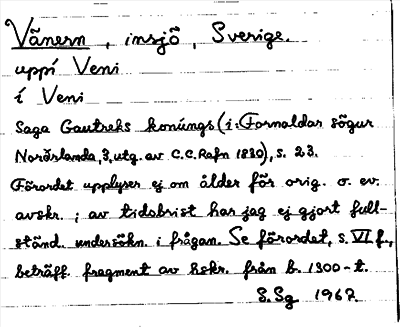 Vänern, insjö, Sverige.
uppí Veni
í Veni
Saga Gautreks konúngs (i: Fornaldar sögur
Norðrlanda, 3, utg. av C.C. Rafn 1830), s. 23.
Förordet upplyser ej om ålder för orig. o. ev.
avskr.; av tidsbrist har jag ej gjort full-
ständ. undersökn. i frågan. Se förordet, s. VI f.,
beträff. fragment av hskr. från b. 1300-t.
S.Sg 1967